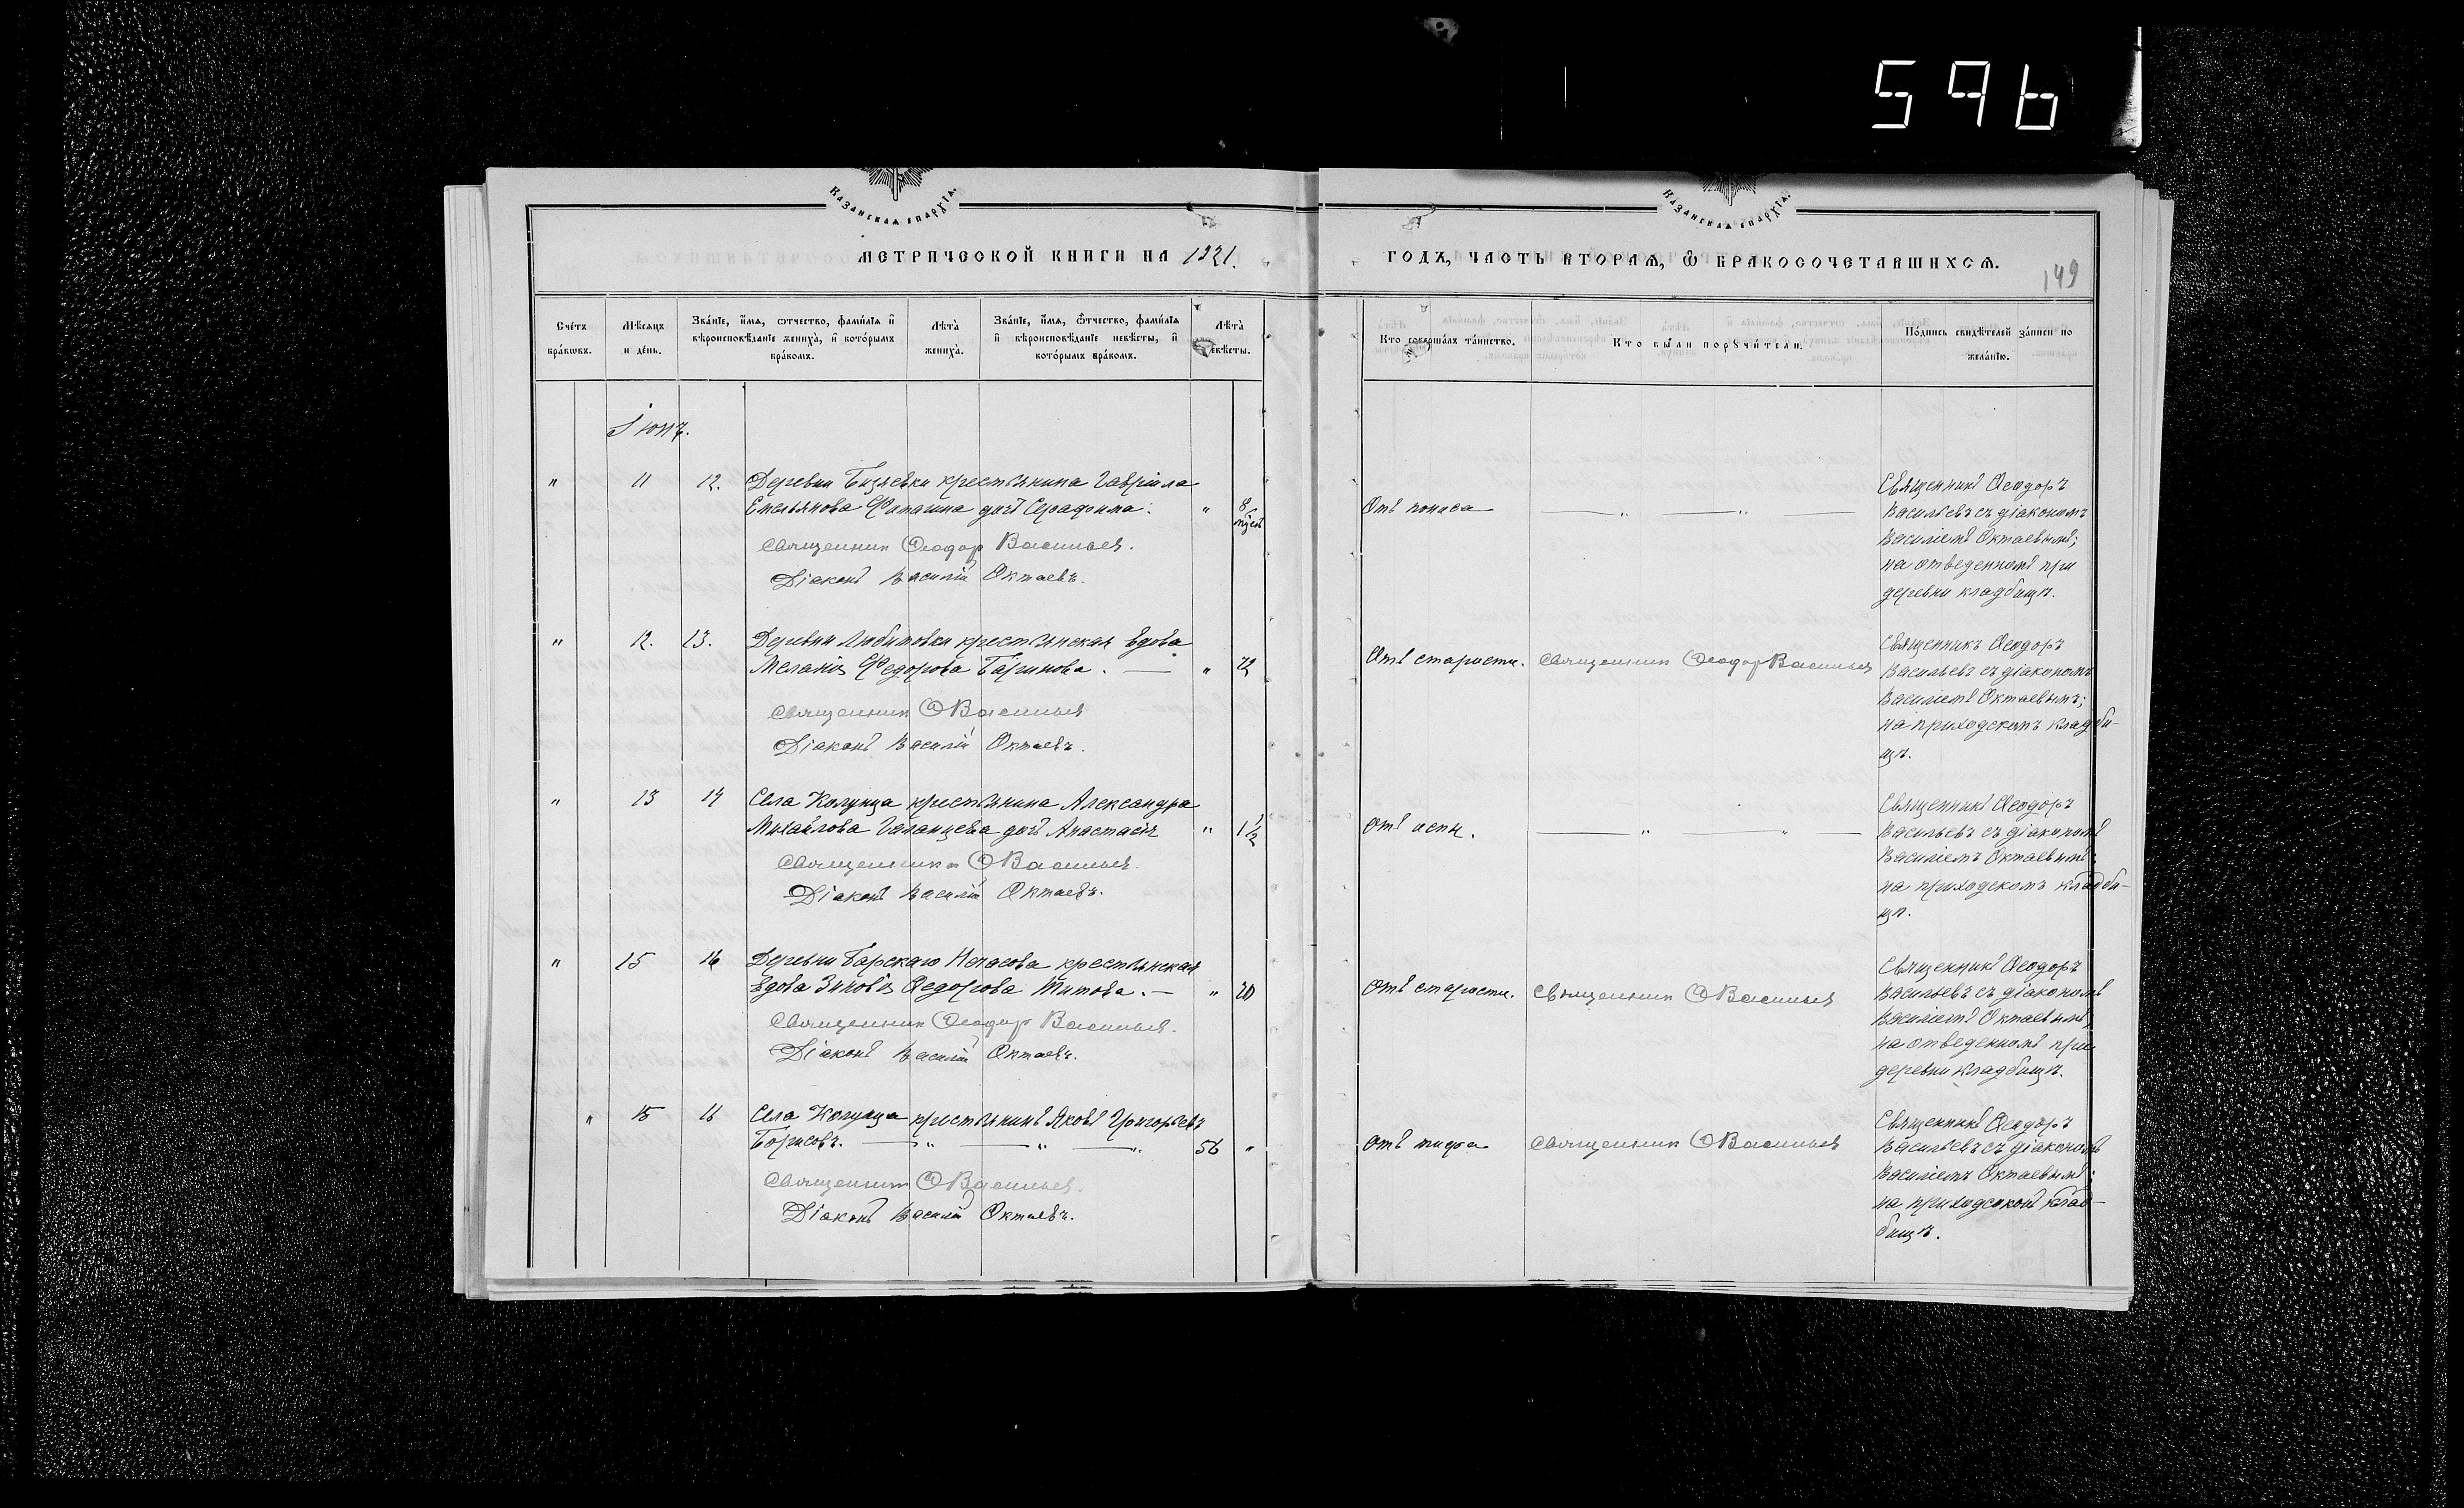 596
КАЗАНСКАЯ ЕПАРХІЯ.
КАЗАНСКАЯ ЕПАРХІЯ.
МЕТРИЧЕСКОЙ КНИГИ НА 1921.
ГОДЪ, ЧАСТЬ ВТОРАЯ, Ѡ БРАКОСОЧЕТАВШИХСЯ.
149
Счетъ браковъ.
Мѣсяцъ и день.
Званіе, имя, отчество, фамилія и вѣроисповѣданіе жениха, и которымъ бракомъ.
Лѣта жениха.
Званіе, имя, отчество, фамилія и вѣроисповѣданіе невѣсты, и которымъ бракомъ.
Лѣта невѣсты.
Кто совершалъ таинство.
Кто были поручители.
Подпись свидѣтелей записи по желанію.
Іюнь.
" 11 12. Деревни Бизяевки крестьянина Гавріила
Емельянова дочь Серафима. " 8 мѣс.
Священник Ѳеодор Васильев.
Діаконъ Василій Октаевъ.
Отъ поноса
Священникъ Ѳеодоръ
Васильевъ съ діакономъ
Василіемъ Октаевымъ;
на отведенномъ при
деревни кладбищѣ.
" 12. 13. Деревни Любимовки крестьянская вдова
Меланія Федорова Баринова. — " 72
Священник Ѳ Васильев
Діаконъ Василій Октаевъ.
Отъ старости. Священник Ѳеодор Васильев
Священникъ Ѳеодоръ
Васильевъ съ діакономъ
Василіемъ Октаевымъ;
на приходскомъ кладби-
щѣ.
" 13 14 Села Колунца крестьянина Александра
Михайлова Галанцева дочь Анастасія " 1½
Священник Ѳ Васильев.
Діаконъ Василій Октаевъ.
Отъ оспы.
Священникъ Ѳеодоръ
Васильевъ съ діакономъ
Василіемъ Октаевымъ;
на приходскомъ кладби-
щѣ.
" 15 16 Деревни Барскаго Нечасова крестьянская
вдова Зиновія Ѳедорова Титова. — " 70
Священник Ѳеодор Васильев.
Діаконъ Василій Октаевъ.
Отъ старости. Священник Ѳ Васильев
Священникъ Ѳеодоръ
Васильевъ съ діакономъ
Василіемъ Октаевымъ;
на отведенномъ при
деревни кладбищѣ.
" 15 16 Села Колунца крестьянинъ Яковъ Григорьевъ
Борисовъ. — " — " — " 56 "
Священник Ѳ Васильев.
Діаконъ Василій Октаевъ.
Отъ тифа Священник Ѳ Васильев
Священникъ Ѳеодоръ
Васильевъ съ діакономъ
Василіемъ Октаевымъ;
на приходскомъ клад-
бищѣ.